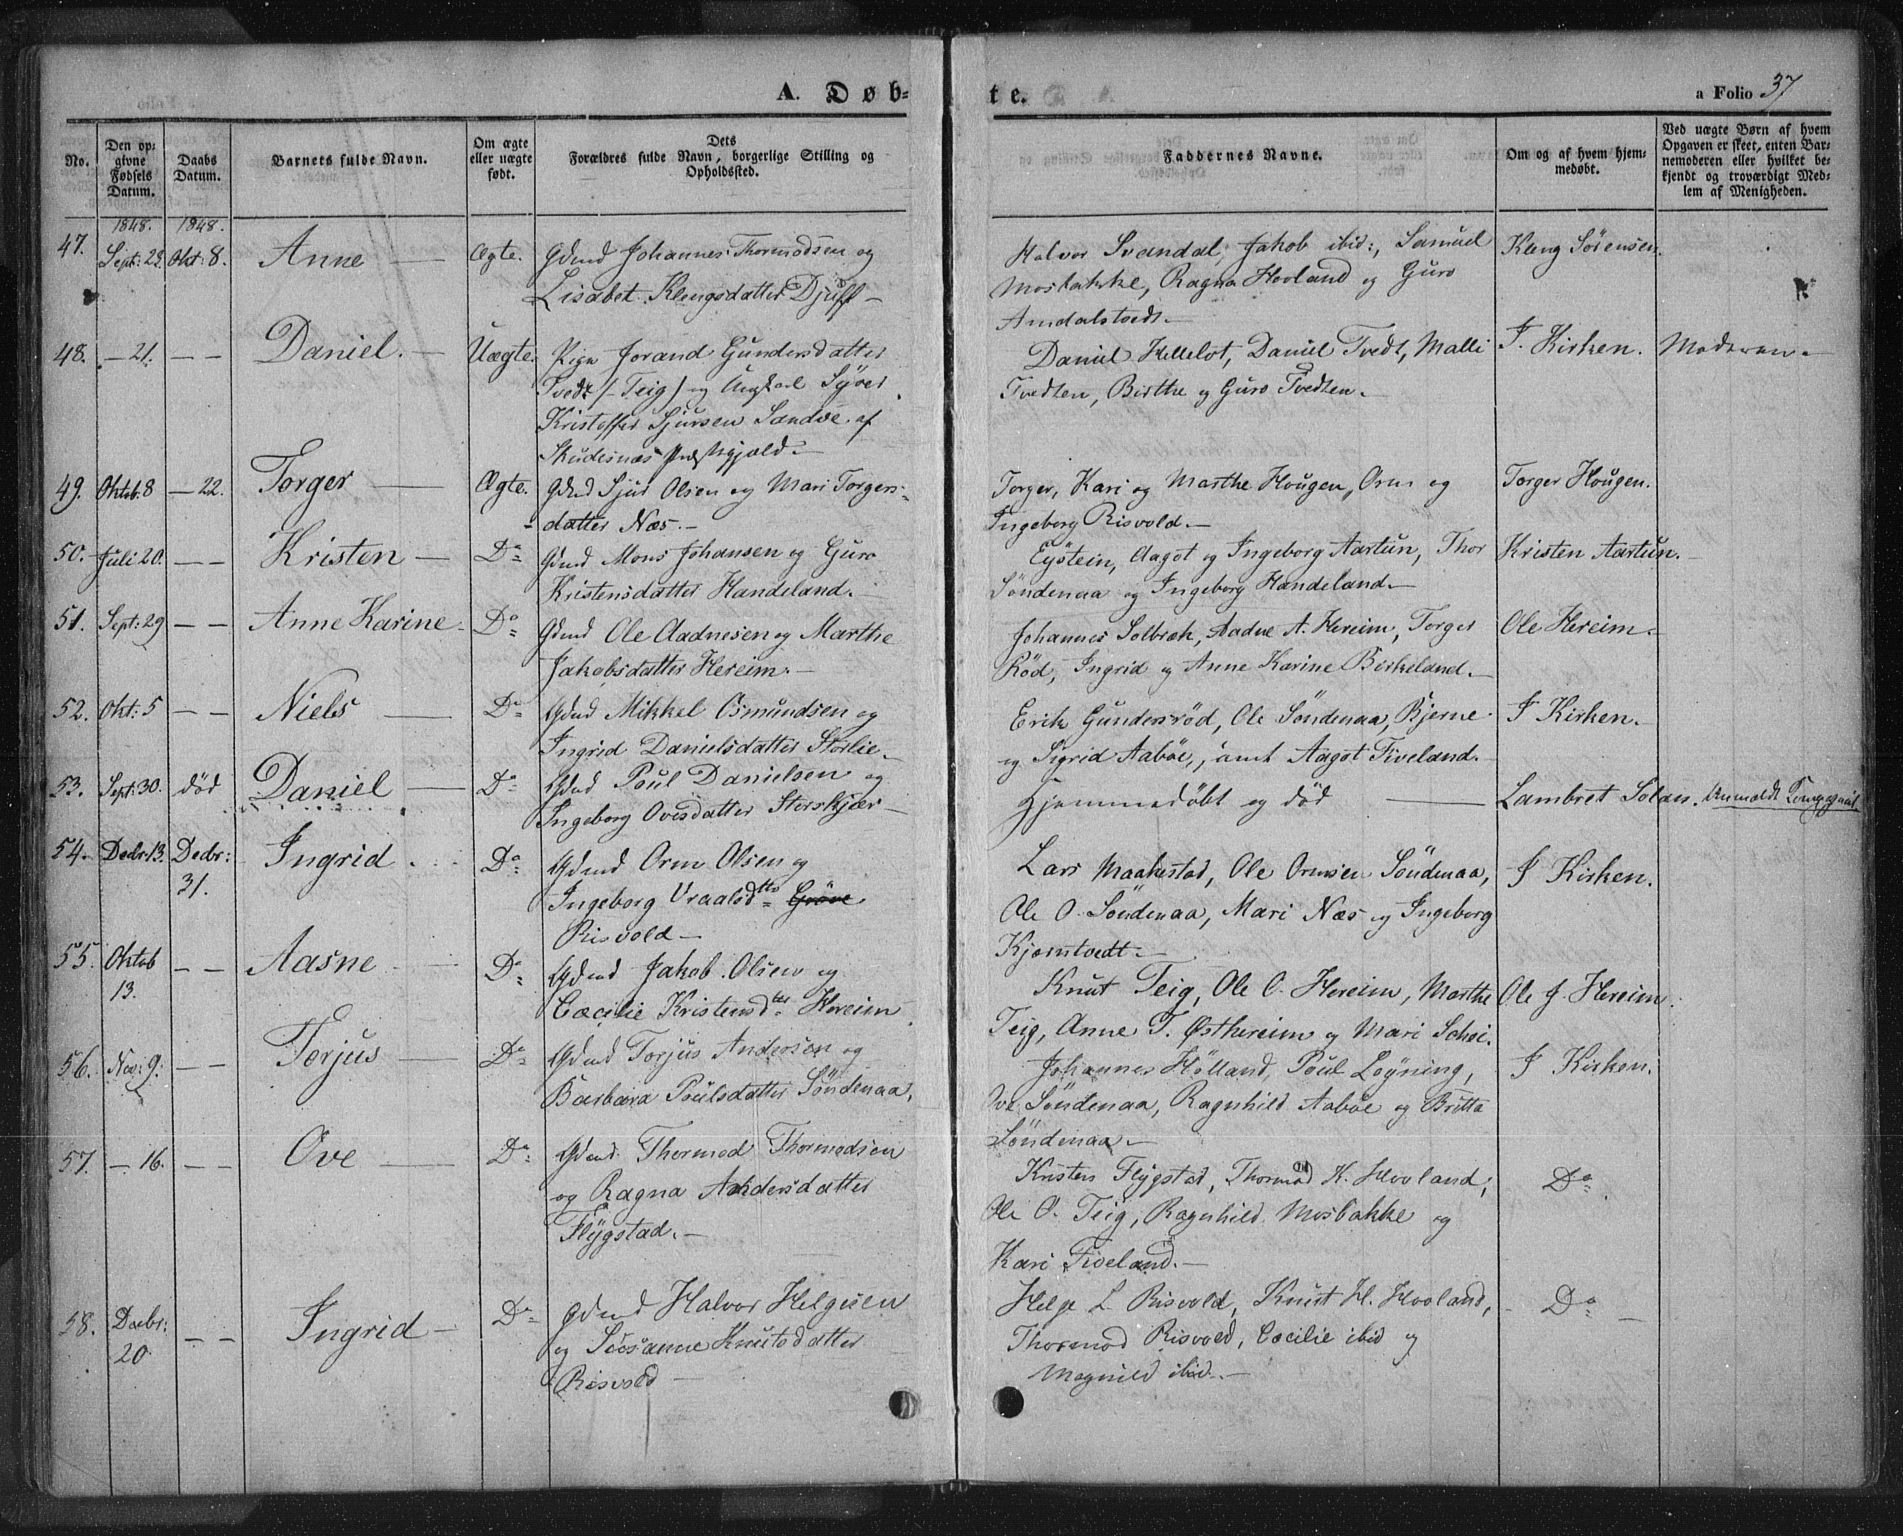 A. Døb-
te.
a Folio 37
No.
Den op-
givne
Fødsels
Datum.
Daabs
Datum.
Barnets fulde Navn.
Om ægte
eller uægte
født.
Dets
Forældres fulde Navn, borgerlige Stilling og
Opholdssted.
Faddernes Navne.
Om og af hvem hjem-
medøbt.
Ved uægte Børn af hvem
Opgaven er skeet, enten Bar-
nemoderen eller hvilket be-
kjendt og troværdigt Med-
lem af Menigheden.
1848. 1848.
47. Sept: Okt: 8. Anne — Ægte. Gdmd Johannes Thormodsen og
Lisabet Klengsdatter Djuff —
Halvor Svandal, Jakob ibid:, Samuel
Mosbakke, Ragna Hovland og Guro
Amdalstvedt. —
Kleng Sörensen.
48. — 21. — — Daniel. — Uægte. Pige Jorand Gundersdatter
Tvedt /— Teig/ og Ungkarl Syver
Kristoffer Sjursen Sandve af
Skudesnæs Præstegjæld. —
Daniel Helleløt, Daniel Tvedt, Malli
Tvedten, Birthe og Guro Tvedten. —
I Kirken. Moderen —
49. Oktob: 8 — 22. Torger — Ægte. Gdmd Sjur Olsen og Mari Torgers-
datter Næs. —
Torger, Kari og Marthe Hougen, Orm og
Ingeborg Risvold. —
Torger Hougen.
50. Juli 20. — — Kristen — Do Gdmd Mons Johansen og Guro
Kristensdatter Handeland. —
Eystein, Aagot og Ingeborg Aartun, Thor
Söndenaa og Ingeborg Handeland. —
Kristen Aartun. —
51. Sept: 29 — — Anne Karine — Do Gdmd Ole Aadnesen og Marthe
Jakobsdatter Hereim. —
Johannes Solbræk, Aadne A. Hereim, Torger
Röd, Ingrid og Anne Karine Birkeland. —
Ole Hereim —
52. Okt: 5 — — Niels — Do Gdmd Mikkel Osmundsen og
Ingrid Danielsdatter Storlie. —
Erik Gundersröd, Ole Söndenaa, Bjerne
og Sigrid Aaböe, samt Aagot Tiveland.
I Kirken. —
53. Sept: 30. død Daniel — Do Gdmd Poul Danielsen og
Ingeborg Ovesdatter Storskjær —
Hjemmedöbt og död —
Lambret Anmeldt
54. Decbr: 13. Decbr:
31. Ingrid. Do Gdmd Orm Olsen og
Ingeborg Vraalsdtr Gröve
Risvold —
Lars Maakestad, Ole Ormsen Söndenaa,
Ole O. Söndenaa, Mari Næs og Ingeborg
Kjørntvedt —
I Kirken.
55. Oktob
13. — — Aasne Do Gdmd Jakob Olsen og
Cæcilie Kristensdtr Hereim
Knut Teig, Ole O. Hereim, Marthe
Teig, Anne T. Østhereim og Mari
Ole J. Hereim.
56. Nov: 9. — — Torjus — Do Gdmd Torjus Andersen og
Barbara Poulsdatter Söndenaa.
Johannes Hölland, Poul Löyning,
Ove Söndenaa, Ragnhild Aaböe og Britta
Söndenaa —
I Kirken.
57. — 16. — — Ove — Do Gdmd Thormod Thormodsen
og Ragna Andersdatter
Flygstad. —
Kristen Flygstad, Thormod K. Hovland,
Ole O. Teig, Ragnhild Mosbakke og
Kari Tiveland. —
Do
58. Decbr:
20. — — Ingrid — Do Gdmd Halvor Helgesen
og Susanne Knutsdatter
Risvold —
Helge L. Risvold, Knut H. Hovland,
Thormod Risvold, Cæcilie ibid og
Magnild ibid. —
Do —